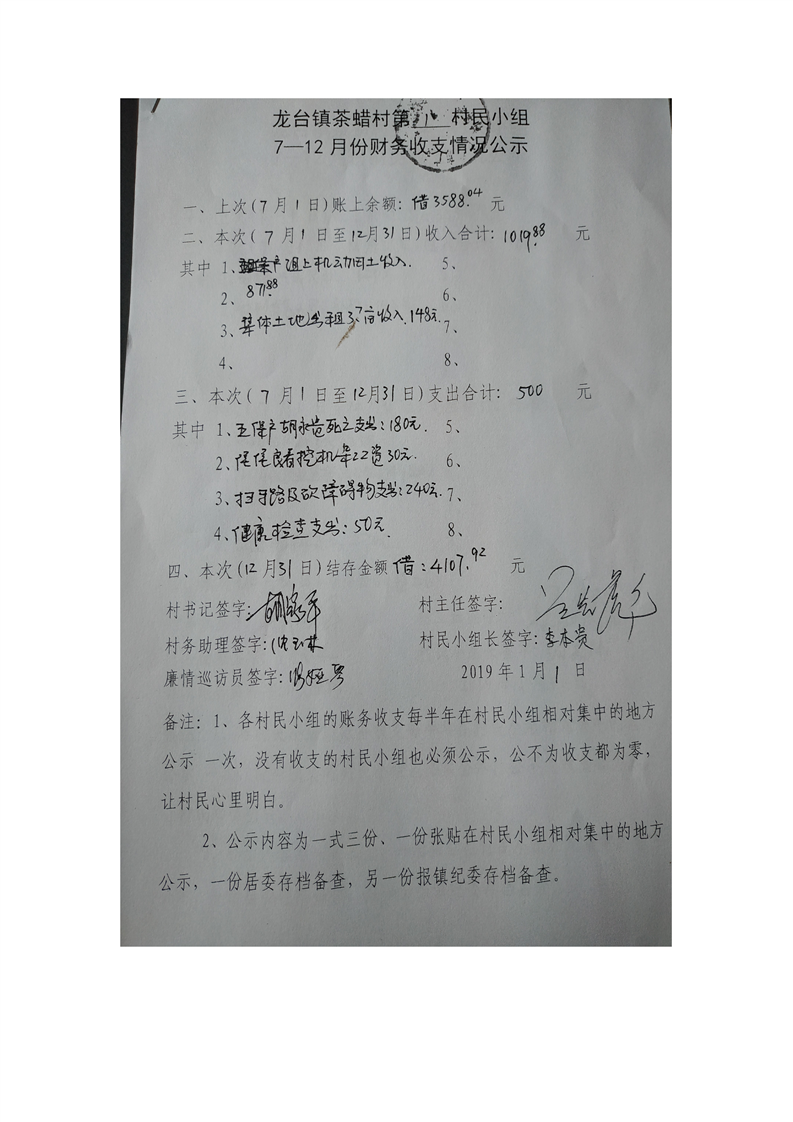 龙台镇茶蜡村第 八 村民小组
7—12月份财务收支情况公示
一、上次(7月1日)账上余额：借3588.04 元
二、本次(7月1日至12月31日)收入合计：1019.88 元
其中 1、 组上机动田土收入 5、
2、871.88 6、
3、集体土地出租3.7亩收入.148元. 7、
4、 8、
三、本次(7月1日至12月31日)支出合计： 500 元
其中 1、五保户胡永贵死亡支出:180元. 5、
2、 看挖机 30元. 6、
3、扫马路及砍障碍物支出:240元. 7、
4、健康检查支出：50元. 8、
四、本次(12月31日)结存金额 借：4107.92 元
村书记签字: 村主任签字：
村务助理签字: 村民小组长签字：李本贵
廉情巡访员签字: 2019年1月1日
备注：1、各村民小组的账务收支每半年在村民小组相对集中的地方
公示 一次，没有收支的村民小组也必须公示，公不为收支都为零，
让村民心里明白。
2、公示内容为一式三份、一份张贴在村民小组相对集中的地方
公示，一份居委存档备查，另一份报镇纪委存档备查。